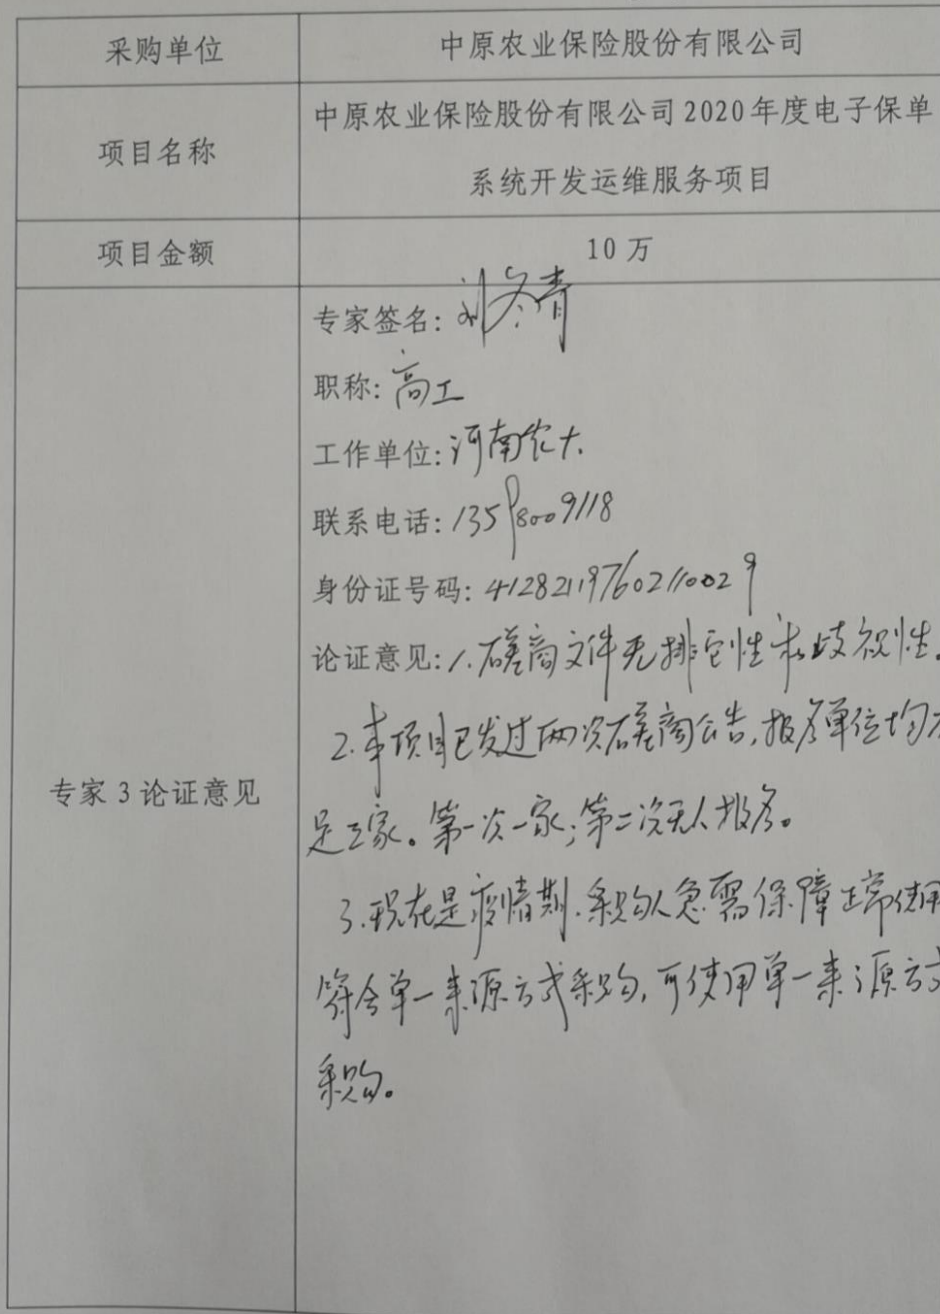 采购单位
中原农业保险股份有限公司
项目名称
中原农业保险股份有限公司2020年度电子保单
系统开发运维服务项目
项目金额
10万
专家3论证意见
专家签名:刘冬青
职称:高工
工作单位:河南农大
联系电话:13598009118
身份证号码:412821197602110029
论证意见:1.磋商文件无排它性和歧视性。
2.本项目已发过两次磋商公告,报名单位均不
足三家。第一次一家;第二次无人报名。
3.现在是疫情期.采购人急需保障正常使用
符合单一来源方式采购,可使用单一来源方式
采购。